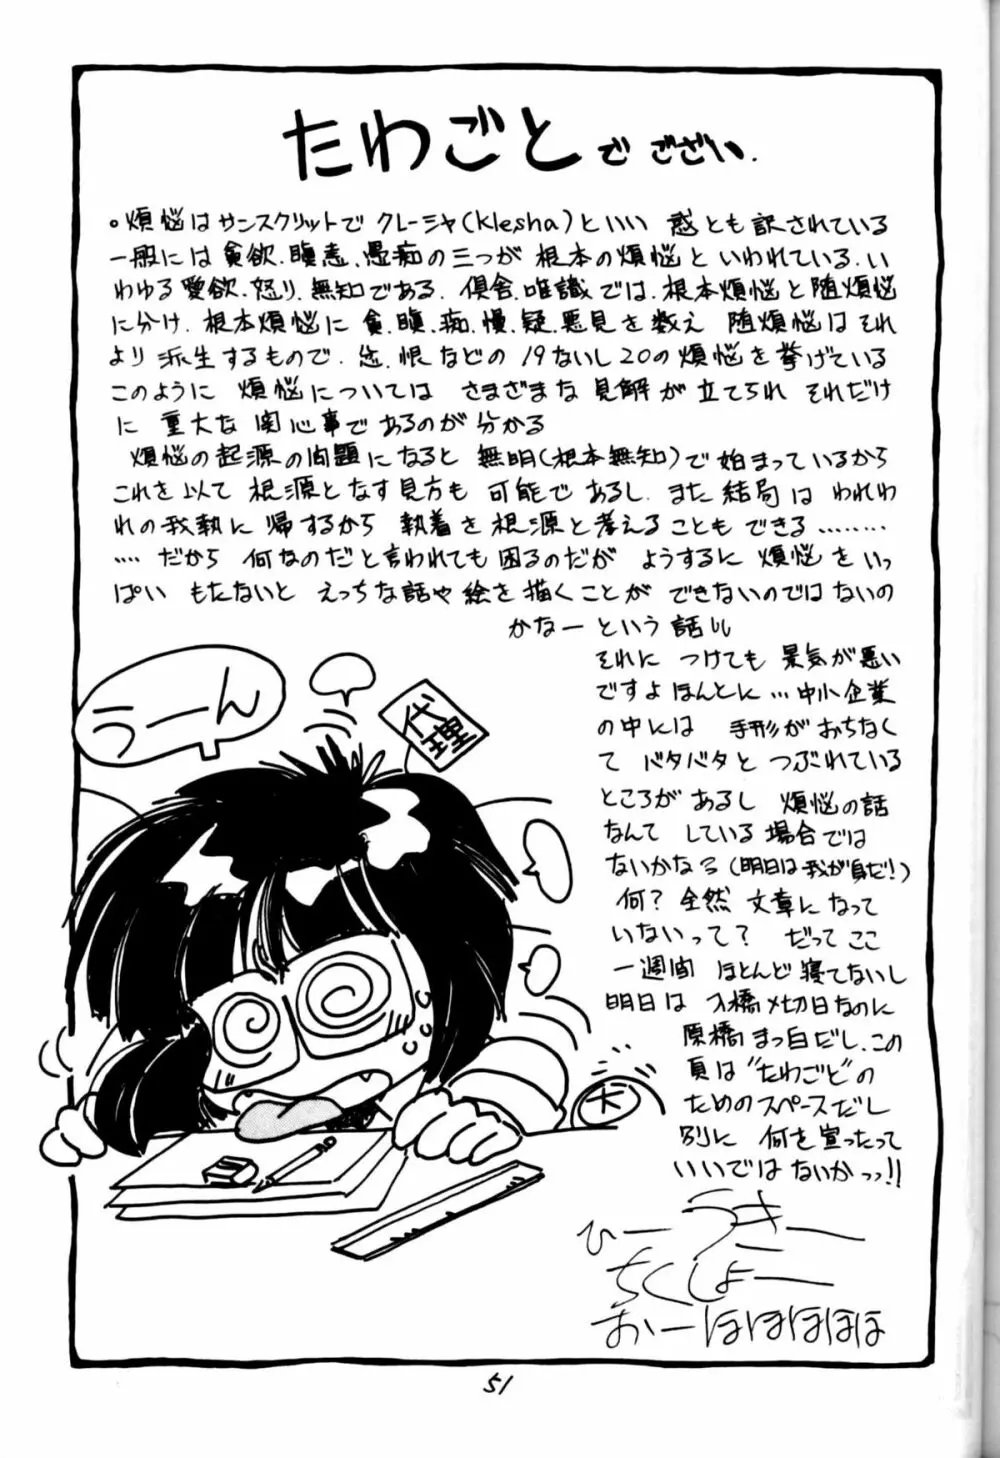 たわごとでございい.
。煩悩はサンスクリットでクレーシャ(Klesha)といい 惑とも訳されている
一般には貪欲.瞋恚.愚痴の三つが根本の煩悩といわれている.い
わゆる愛欲.怒り.無知である.倶舎.唯識では.根本煩悩と随煩悩
に分け.根本煩悩に貪.瞋.痴.慢.疑.悪見を数え 随煩悩はそれ
より派生するもので. 恨などの19ないし20の煩悩を挙げている
このように 煩悩については さまざまな見解が立てられ それだけ
に重大な関心事であるのが分かる
煩悩の起源の問題になると 無明(根本無知)で始まっているから
これを以て 根源となす見方も 可能であるし.また結局はわれわ
れの我執に帰するから 執着を根源と考えることもできる………
…. だから 何なのだと言われても困るのだが ようするに煩悩をいっ
ぱい もたないと えっちな話や絵を描くことが できないのではないの
かなーという話
それに つけても 景気が悪い
ですよほんとに…中小企業
の中には 手形がおちなく
て バタバタと つぶれている
ところが あるし 煩悩の話
なんて している場合では
ないかなろ(明日は我が身だ!)
何? 全然 文章になって
いないって? だって ここ
一週間 ほとんど寝てないし
明日は 入橋〆切日なのに
原橋まっ白だし.この
頁は"たわごと"の
ためのスペースだし
別に 何を宣ったって
いいでは ないかっっ!!
ひーうきー
ちくしょー
おーほほほほほ
うーん
代理
大
51